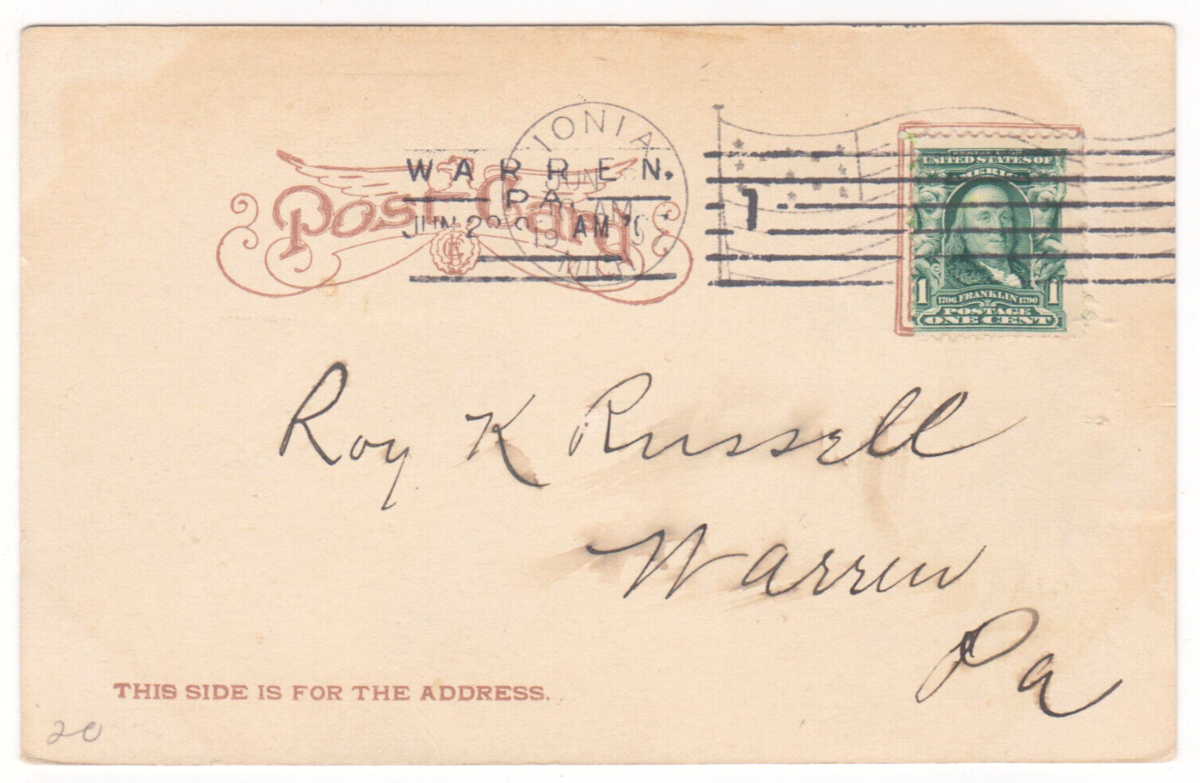 Post Card
IONIA
JUN
AM
MICH
WARREN.
PA
JUN 29
AM
1
UNITED STATES OF
AMERICA
1 1
1706 FRANKLIN 1790
POSTAGE
ONE CENT
Roy K Russell
Warren
Pa
THIS SIDE IS FOR THE ADDRESS.
20